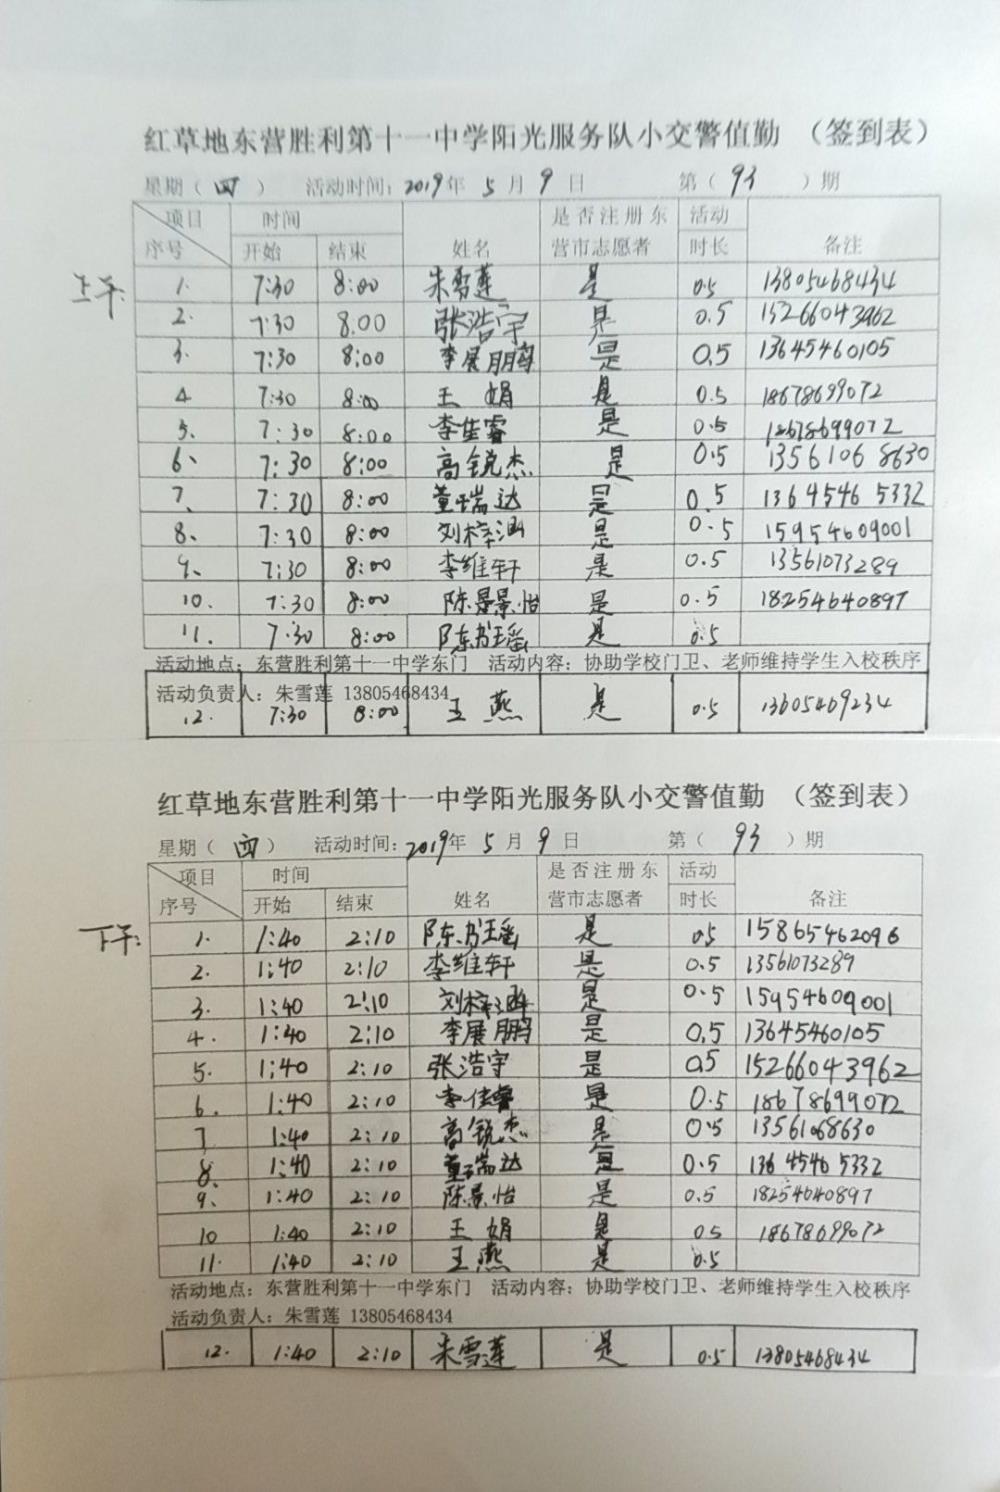 红草地东营胜利第十一中学阳光服务队小交警值勤 （签到表）
星期（ 四 ） 活动时间：2019年 5 月 9 日 第（ 93 ）期
项目 时间 是否注册东 活动
序号 开始 结束 姓名 营市志愿者 时长 备注
上午：
1. 7:30 8:00 朱雪莲 是 0.5 13805468434
2. 7:30 8.00 张浩宇 是 0.5 15266043962
3. 7:30 8:00 李展鹏 是 0.5 13645460105
4 7:30 8:00 王 娟 是 0.5 18678699072
5. 7:30 8:00 李佳睿 是 0.5 18678699072
6、 7:30 8:00 高锐杰 是 0.5 13561068630
7、 7:30 8:00 董瑞达 是 0.5 13645465332
8、 7:30 8:00 刘梓涵 是 0.5 15954609001
9、 7:30 8:00 李维轩 是 0.5 13561073289
10. 7:30 8:00 陈景怡 是 0.5 18254640897
11. 7:30 8:00 陈书瑶 是 0.5
活动地点：东营胜利第十一中学东门 活动内容：协助学校门卫、老师维持学生入校秩序
活动负责人：朱雪莲 13805468434
12. 7:30 8:00 王 燕 是 0.5 13605469234
红草地东营胜利第十一中学阳光服务队小交警值勤 （签到表）
星期（ 四 ） 活动时间：2019年 5 月 9 日 第（ 93 ）期
项目 时间 是否注册东 活动
序号 开始 结束 姓名 营市志愿者 时长 备注
下午：
1. 1:40 2:10 陈书瑶 是 0.5 15865462096
2. 1:40 2:10 李维轩 是 0.5 13561073289
3. 1:40 2:10 刘梓涵 是 0.5 15954609001
4. 1:40 2:10 李展鹏 是 0.5 13645460105
5. 1:40 2:10 张浩宇 是 0.5 15266043962
6. 1:40 2:10 李佳睿 是 0.5 18678699072
7 1:40 2:10 高锐杰 是 0.5 13561068630
8. 1:40 2:10 董瑞达 是 0.5 13645465332
9、 1:40 2:10 陈景怡 是 0.5 18254640897
10 1:40 2:10 王 娟 是 0.5 18678699072
11. 1:40 2:10 王 燕 是 0.5
活动地点：东营胜利第十一中学东门 活动内容：协助学校门卫、老师维持学生入校秩序
活动负责人：朱雪莲 13805468434
12. 1:40 2:10 朱雪莲 是 0.5 13805468434